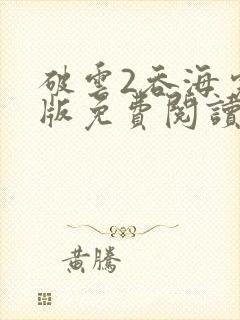 破雲2吞海完
版免費閱讀
黃騰